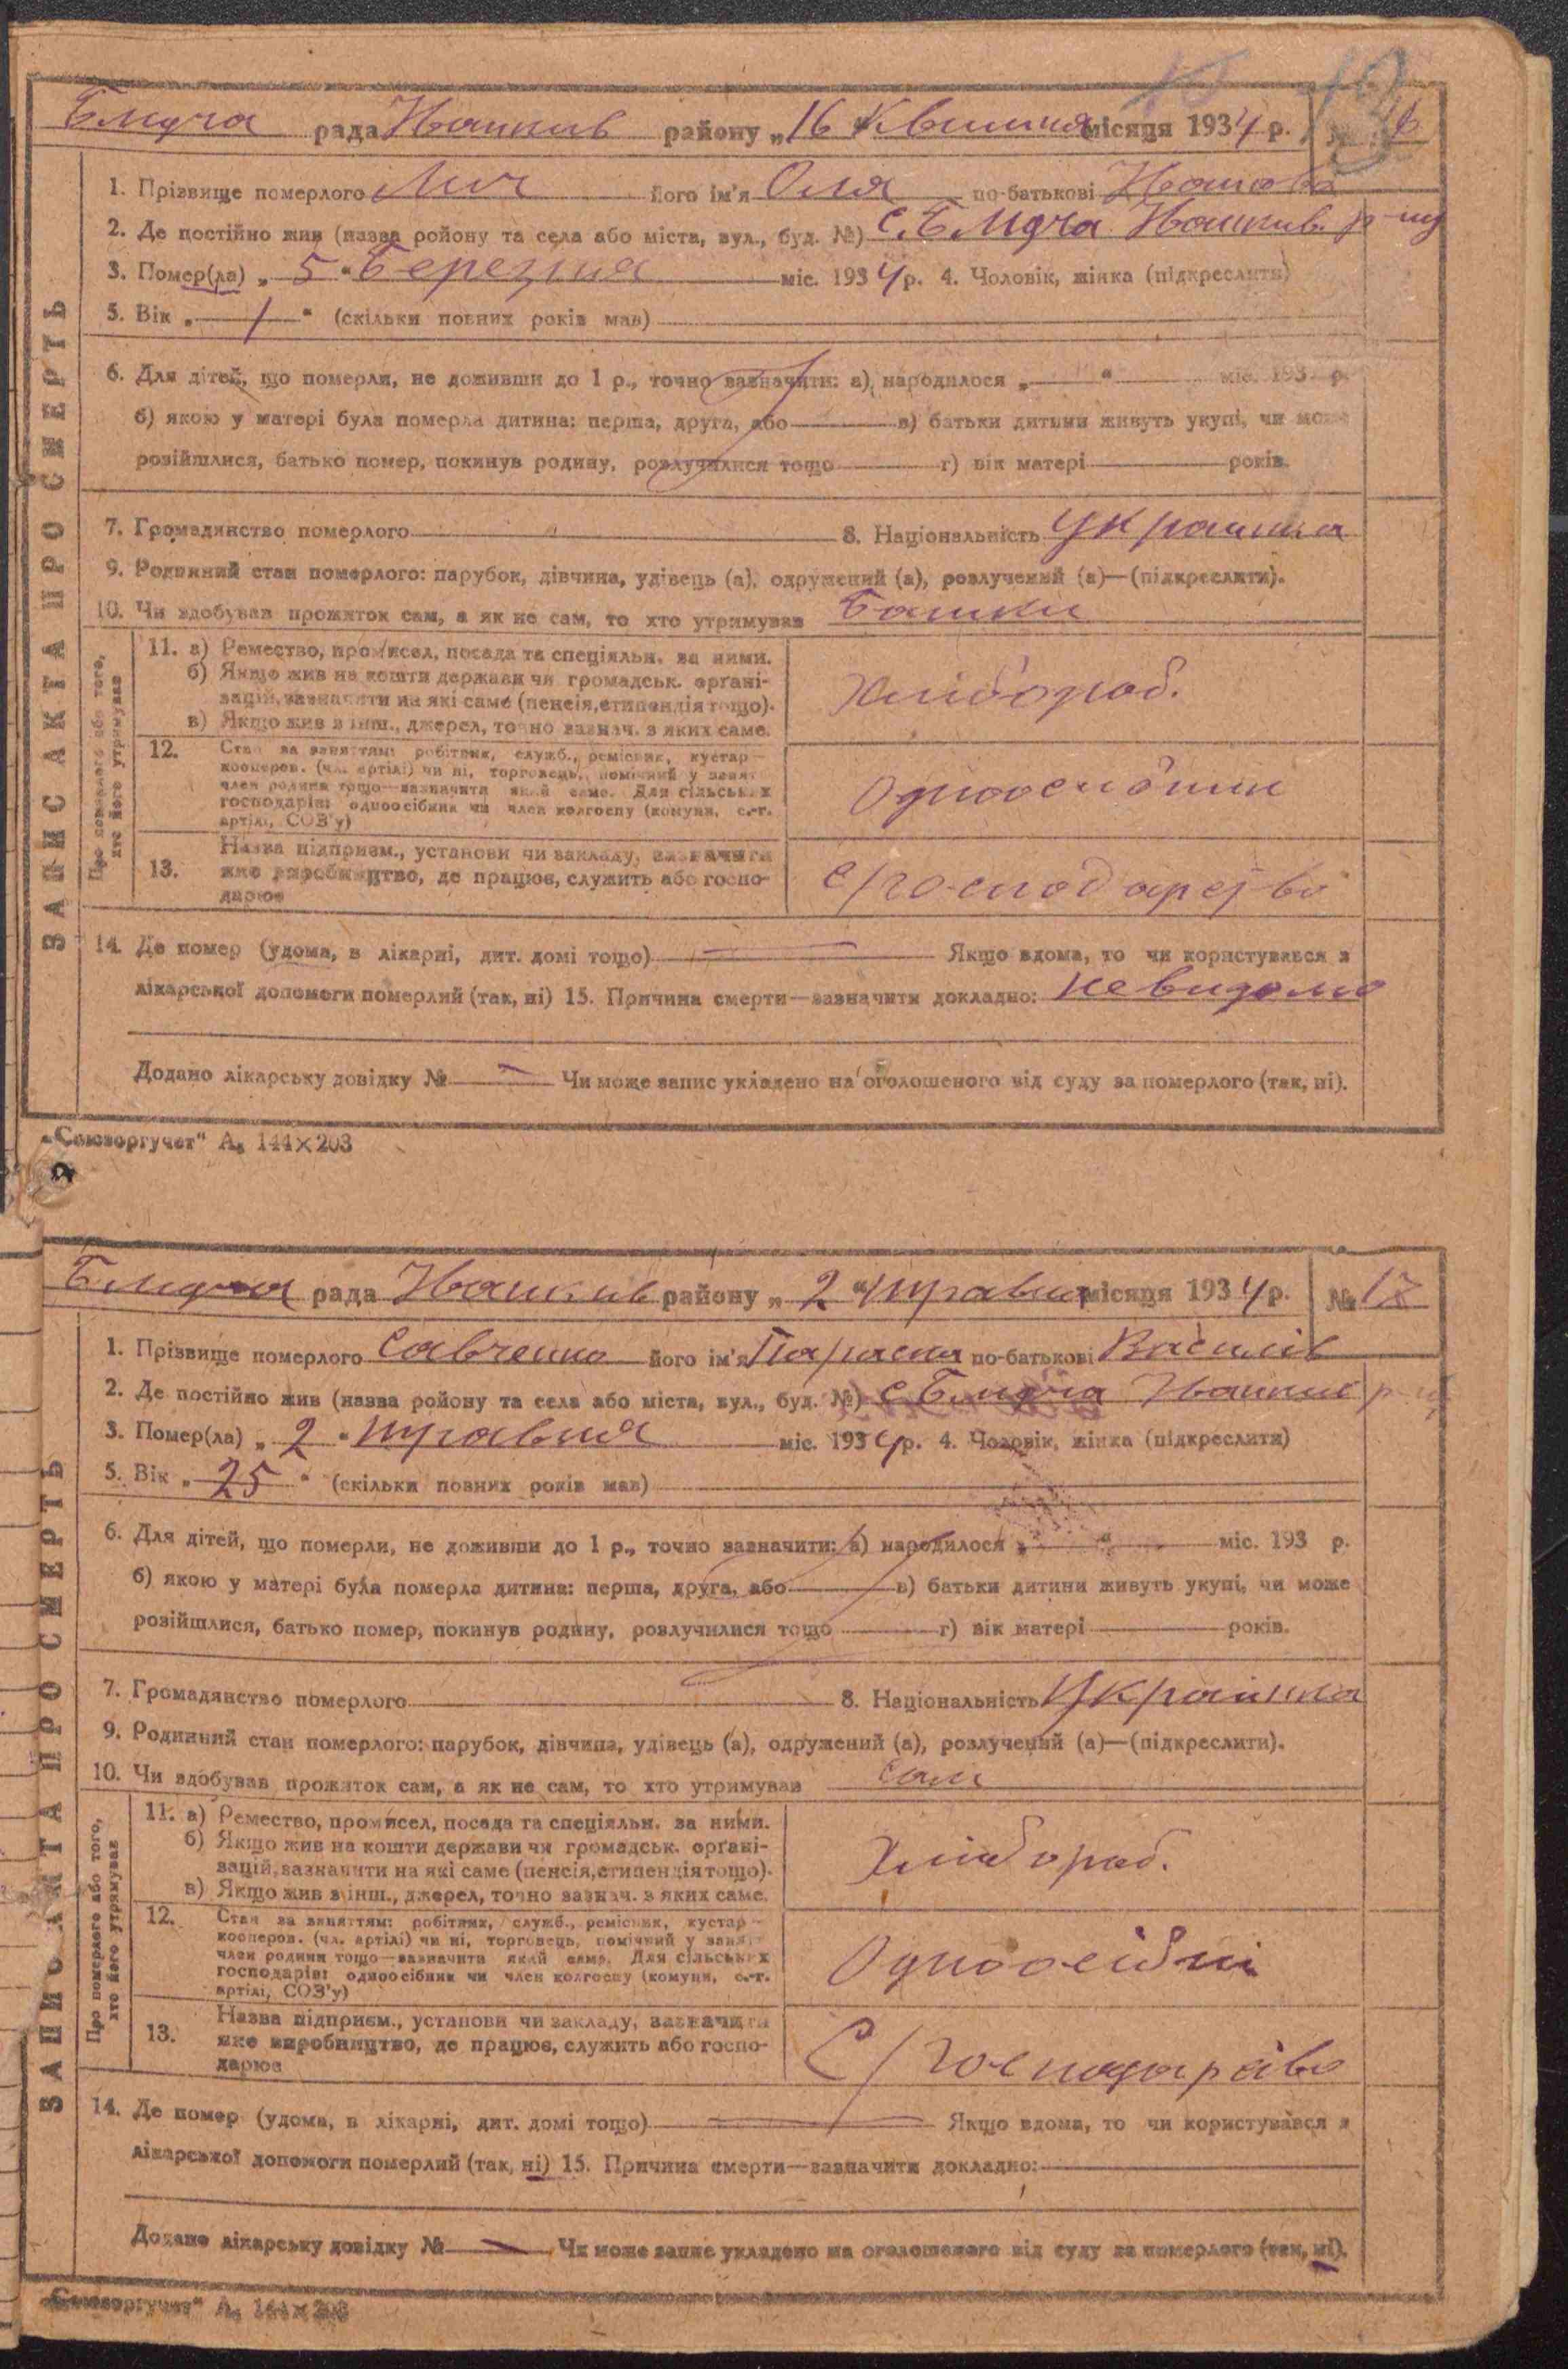 Блидча рада Іванків району „16" Квітня місяця 1934 р. № 16
1. Прізвище померлого Лич його ім'я Оля по-батькові Іванова
2. Де постійно жив (назва ройону та села або міста, вул., буд. №) с. Блидча Іванків. р-ну
3. Помер(ла) „ 5 " Березня міс. 1934 р. 4. Чоловік, жінка (підкреслити)
5. Вік „ 1 " (скільки повних років мав)
6. Для дітей, що померли, не доживши до 1 р., точно зазначити: а) народилося „ " міс. 193 р.
б) якою у матері була померла дитина: перша, друга, або в) батьки дитини живуть укупі, чи може
розійшлися, батько помер, покинув родину, розлучилися тощо г) вік матері років.
7. Громадянство померлого 8. Національність Українка
9. Родинний стан померлого: парубок, дівчина, удівець (а), одружений (а), розлучений (а)—(підкреслити).
10. Чи здобував прожиток сам, а як не сам, то хто утримував Батьки
ЗАПИС АКТА ПРО СМЕРТЬ
Про померлого або того,
хто його утримував
11. а) Ремество, промисел, посада та спеціяльн. за ними.
б) Якщо жив на кошти держави чи громадськ. орґані-
зацій, зазначити на які саме (пенсія, стипендія тощо).
в) Якщо жив з інш., джерел, точно зазнач. з яких саме.
Хлібороб.
12. Стан за заняттям: робітник, служб., ремісник, кустар—
кооперов. (чл. артілі) чи ні, торговець, помічний у занят.
член родини тощо—зазначити який саме. Для сільських
господарів: одноосібник чи член колгоспу (комуни, с.-г.
артілі, СОЗ'у)
Одноосибник
13. Назва підприєм., установи чи закладу, зазначити
яке виробництво, де працює, служить або госпо-
дарює
с/господарство
14. Де помер (удома, в лікарні, дит. домі тощо) Якщо вдома, то чи користувався з
лікарської допомоги померлий (так, ні) 15. Причина смерти—зазначити докладно: невидомо
Додано лікарську довідку № Чи може запис укладено на оголошеного від суду за померлого (так, ні).
„Союзоргучет" А₅ 144×203
Блидча рада Іванків району „ 2 " травня місяця 1934 р. № 17
1. Прізвище померлого Савченко його ім'я Параска по-батькові Василів
2. Де постійно жив (назва ройону та села або міста, вул., буд. №) с. Блидча Іванків р-ну
3. Помер(ла) „ 2 " травня міс. 1934 р. 4. Чоловік, жінка (підкреслити)
5. Вік „ 25 " (скільки повних років мав)
6. Для дітей, що померли, не доживши до 1 р., точно зазначити: а) народилося „ " міс. 193 р.
б) якою у матері була померла дитина: перша, друга, або в) батьки дитини живуть укупі, чи може
розійшлися, батько помер, покинув родину, розлучилися тощо г) вік матері років.
7. Громадянство померлого 8. Національність Українка
9. Родинний стан померлого: парубок, дівчина, удівець (а), одружений (а), розлучений (а)—(підкреслити).
10. Чи здобував прожиток сам, а як не сам, то хто утримував сам
ЗАПИС АКТА ПРО СМЕРТЬ
Про померлого або того,
хто його утримував
11. а) Ремество, промисел, посада та спеціяльн. за ними.
б) Якщо жив на кошти держави чи громадськ. орґані-
зацій, зазначити на які саме (пенсія, стипендія тощо).
в) Якщо жив з інш., джерел, точно зазнач. з яких саме.
Хлібороб.
12. Стан за заняттям: робітник, служб., ремісник, кустар—
кооперов. (чл. артілі) чи ні, торговець, помічний у занят.
член родини тощо—зазначити який саме. Для сільських
господарів: одноосібник чи член колгоспу (комуни, с.-г.
артілі, СОЗ'у)
Одноосібні
13. Назва підприєм., установи чи закладу, зазначити
яке виробництво, де працює, служить або госпо-
дарює
С/господарсво
14. Де помер (удома, в лікарні, дит. домі тощо) Якщо вдома, то чи користувався з
лікарської допомоги померлий (так, ні) 15. Причина смерти—зазначити докладно:
Додано лікарську довідку № Чи може запис укладено на оголошеного від суду за померлого (так, ні).
„Союзоргучет" А₅ 144×203